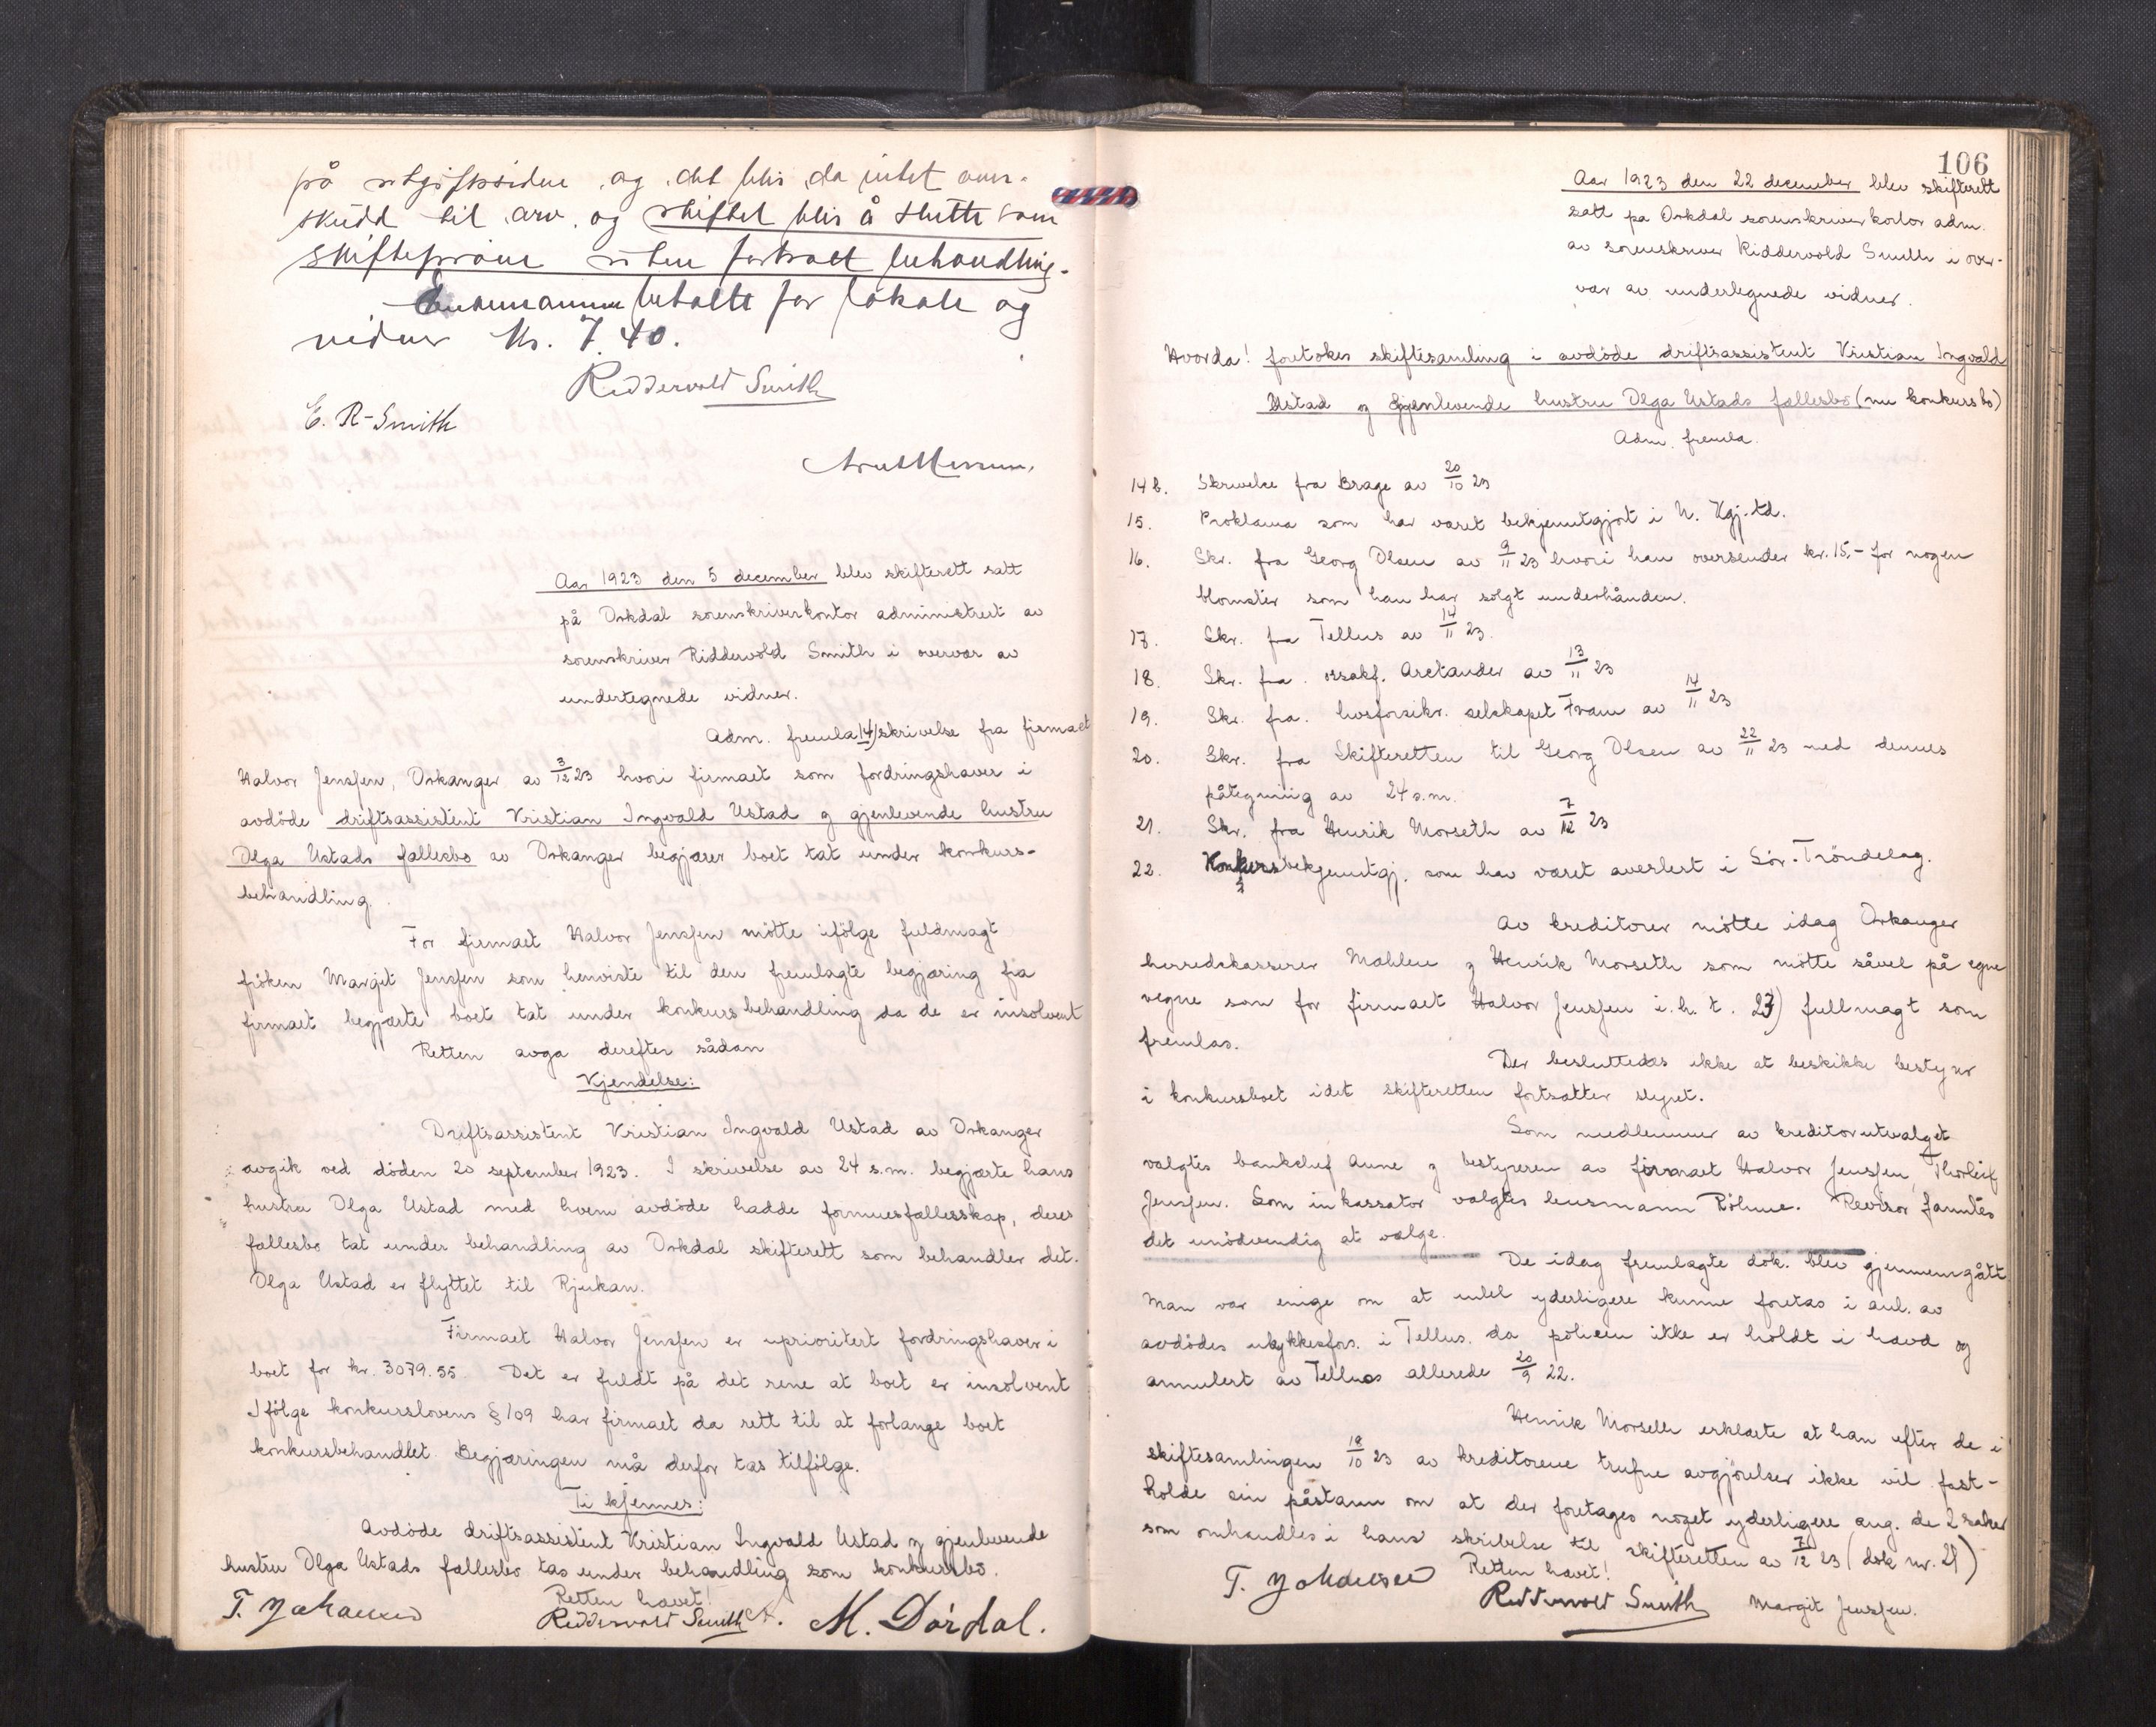 på utgiftssiden og det blir da intet over-
skudd til arv og skiftet blir å slutte som
skifteprøve uten fortsatt behandling.
Enkemannen betalte for lokale og
vidner kr. 7.40.
Riddervold Smith
E. R-Smith
Aar 1923 den 5 december blev skifterett satt
på Orkdal sorenskriverkontor administrert av
sorenskriver Riddervold Smith i overvær av
undertegnede vidner.
Adm. fremla 14) skrivelse fra firmaet
Halvor Jenssen, Orkanger av 3/12 23 hvori firmaet som fordringshaver i
avdöde driftsassistent Kristian Ingvald Ustad og gjenlevende hustru
Olga Ustads fællesbo av Orkanger begjærer boet tat under konkurs-
behandling.
For firmaet Halvor Jenssen mötte ifölge fuldmagt
fröken Margit Jenssen som henviste til den fremlagte begjæring fra
firmaet begjærte boet tat under konkursbehandling da de er insolvent
Retten avga derefter sådan
Kjendelse:
Driftsassistent Kristian Ingvald Ustad av Orkanger
avgik ved döden 20 september 1923. I skrivelse av 24 s.m. begjærte hans
hustru Olga Ustad med hvem avdöde hadde formuesfællesskap, deres
fællesbo tat under behandling av Orkdal skifterett som behandler det.
Olga Ustad er flyttet til Rjukan.
Firmaet Halvor Jenssen er uprioritert fordringshaver i
boet for kr. 3079.55. Det er fuldt på det rene at boet er insolvent
Ifölge konkurslovens § 109 har firmaet da rett til at forlange boet
konkursbehandlet. Begjæringen må derfor tas tilfölge.
Ti kjennes:
Avdöde driftsassistent Kristian Ingvald Ustad og gjenlevende
hustru Olga Ustads fællesbo tas under behandling som konkursbo.
Retten hævet!
T. Johansen Riddervold Smith M. Dördal.
106
Aar 1923 den 22 december blev skifterett
satt på Orkdal sorenskriverkontor adm.
av sorenskriver Riddervold Smith i over-
vær av undertegnede vidner.
Hvorda! foretokes skiftesamling i avdöde driftsassistent Kristian Ingvald
Ustad og gjenlevende hustru Olga Ustads fællesbo (nu konkursbo)
Adm. fremla.
14 b. Skrivelse fra Brage av 20/10 23
15. Proklama som har været bekjenntgjort i N. Kgj.td.
16. Skr. fra Georg Olsen av 9/11 23 hvori han oversender kr. 15,- for nogen
blomster som han har solgt underhånden.
17. Skr. fra Tellus av 14/11 23.
18. Skr. fra. orsakf. Arctander av 13/11 23
19. Skr. fra. livsforsikr. selskapet Fram av 14/11 23
20. Skr. fra Skifteretten til Georg Olsen av 22/11 23 med dennes
påtegning av 24 s.m.
21. Skr. fra Henrik Morseth av 7/12 23
22. Konkursbekjenntgj. som har været avertert i Sör-Tröndelag.
Av kreditorer mötte idag Orkanger
herredskasserer Mahlen og Henrik Morseth som mötte såvel på egne
vegne som for firmaet Halvor Jenssen i.h.t. 23) fullmagt som
fremlas.
Der besluttedes ikke at beskikke bestyrer
i konkursboet idet skifteretten fortsætter styret.
Som medlemmer av kreditorutvalget
valgtes bankchef Aune og bestyreren av firmaet Halvor Jenssen, Thorleif
Jenssen. Som inkassator valgtes lensmann Röhme. Revisor fanntes
det unödvendig at vælge.
De idag fremlagte dok. blev gjennemgått
Man var enige om at intet yderligere kunne foretas i anl. av
avdödes ulykkesfors. i Tellus, da polisen ikke er holdt i hævd og
annulert av Tellus allerede 20/9 22.
Henrik Morseth erklærte at han efter de i
skiftesamlingen 18/10 23 av kreditorene trufne avgjörelser ikke vil fast-
holde sin påstann om at der foretages noget yderligere ang. de 2 saker
som omhandles i hans skrivelse til skifteretten av 7/12 23 (dok nr. 21)
Retten hævet!
T. Johansen Riddervold Smith Margit Jenssen.